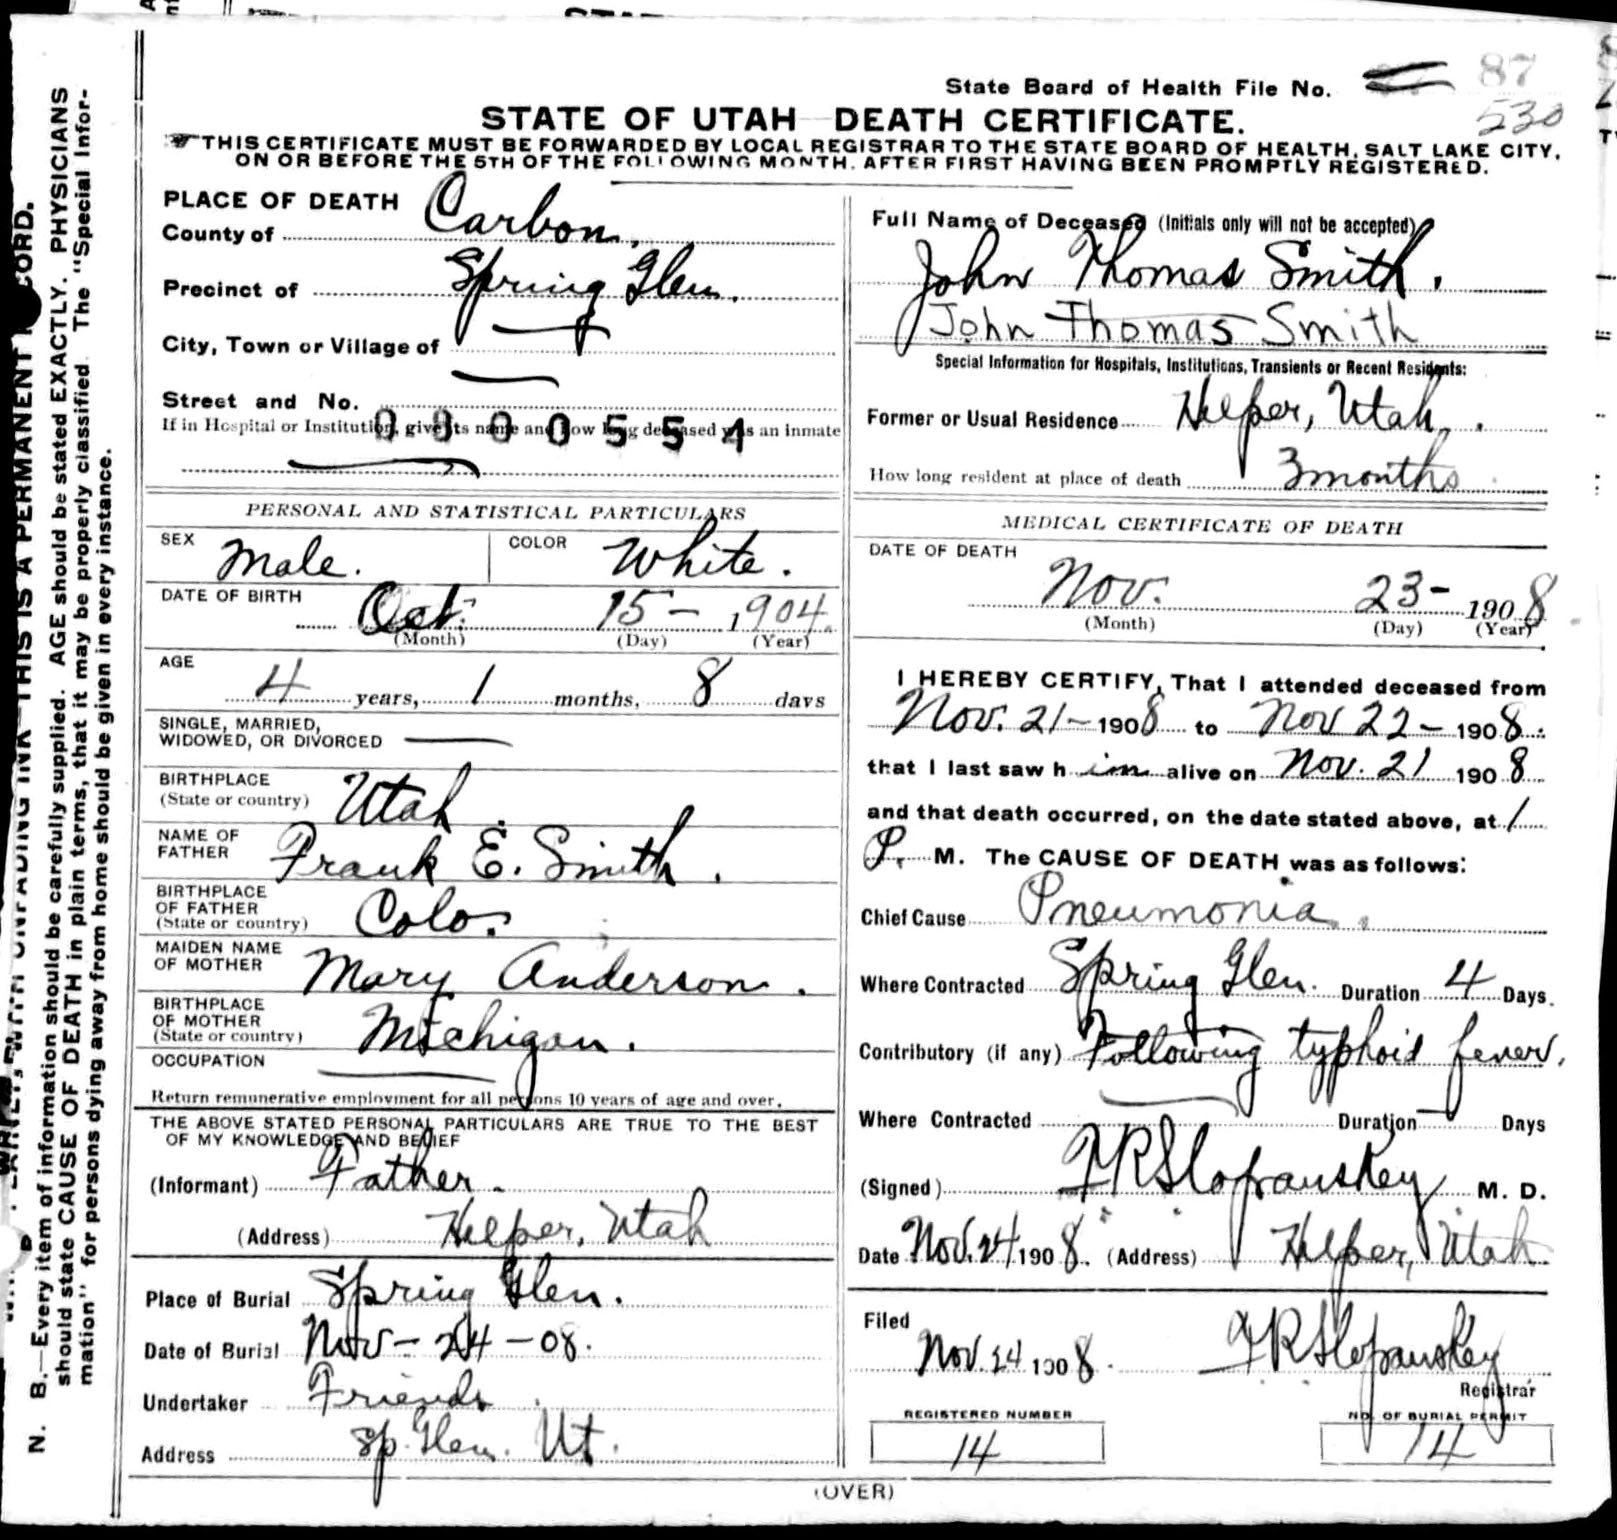 State Board of Health File No. 87
530
STATE OF UTAH DEATH CERTIFICATE.
THIS CERTIFICATE MUST BE FORWARDED BY LOCAL REGISTRAR TO THE STATE BOARD OF HEALTH, SALT LAKE CITY,
ON OR BEFORE THE 5TH OF THE FOLLOWING MONTH. AFTER FIRST HAVING BEEN PROMPTLY REGISTERED.
PLACE OF DEATH
County of Carbon.
Precinct of Spring Glen.
City, Town or Village of
Street and No.
If in Hospital or Institution, give its name and how long deceased was an inmate
0900554
PERSONAL AND STATISTICAL PARTICULARS
SEX Male. COLOR White.
DATE OF BIRTH Oct. 15 - 1904.
(Month) (Day) (Year)
AGE 4 years, 1 months, 8 days
SINGLE, MARRIED,
WIDOWED, OR DIVORCED
BIRTHPLACE
(State or country) Utah
NAME OF
FATHER Frank E. Smith.
BIRTHPLACE
OF FATHER
(State or country) Colo.
MAIDEN NAME
OF MOTHER Mary Anderson.
BIRTHPLACE
OF MOTHER
(State or country) Michigan.
OCCUPATION
Return remunerative employment for all persons 10 years of age and over.
THE ABOVE STATED PERSONAL PARTICULARS ARE TRUE TO THE BEST
OF MY KNOWLEDGE AND BELIEF
(Informant) Father.
(Address) Helper, Utah
Place of Burial Spring Glen.
Date of Burial Nov - 24 - 08.
Undertaker Friends
Address Sp. Glen. Ut.
Full Name of Deceased (Initials only will not be accepted)
John Thomas Smith.
John Thomas Smith
Special Information for Hospitals, Institutions, Transients or Recent Residents:
Former or Usual Residence Helper, Utah.
How long resident at place of death 3 months
MEDICAL CERTIFICATE OF DEATH
DATE OF DEATH
Nov. 23 - 1908
(Month) (Day) (Year)
I HEREBY CERTIFY, That I attended deceased from
Nov. 21 - 1908 to Nov 22 - 1908.
that I last saw h im alive on Nov. 21 1908
and that death occurred, on the date stated above, at 1
P. M. The CAUSE OF DEATH was as follows:
Chief Cause Pneumonia.
Where Contracted Spring Glen. Duration 4 Days.
Contributory (if any) Following typhoid fever.
Where Contracted Duration Days
(Signed) F R Slopanskey M. D.
Date Nov. 24 1908. (Address) Helper, Utah.
Filed
Nov. 24 1908. F R Slopanskey
Registrar
REGISTERED NUMBER
14
NO. OF BURIAL PERMIT
14
(OVER)
N. B.—Every item of information should be carefully supplied. AGE should be stated EXACTLY. PHYSICIANS
should state CAUSE OF DEATH in plain terms, that it may be properly classified. The "Special Infor-
mation" for persons dying away from home should be given in every instance.
UNFADING INK—THIS IS A PERMANENT